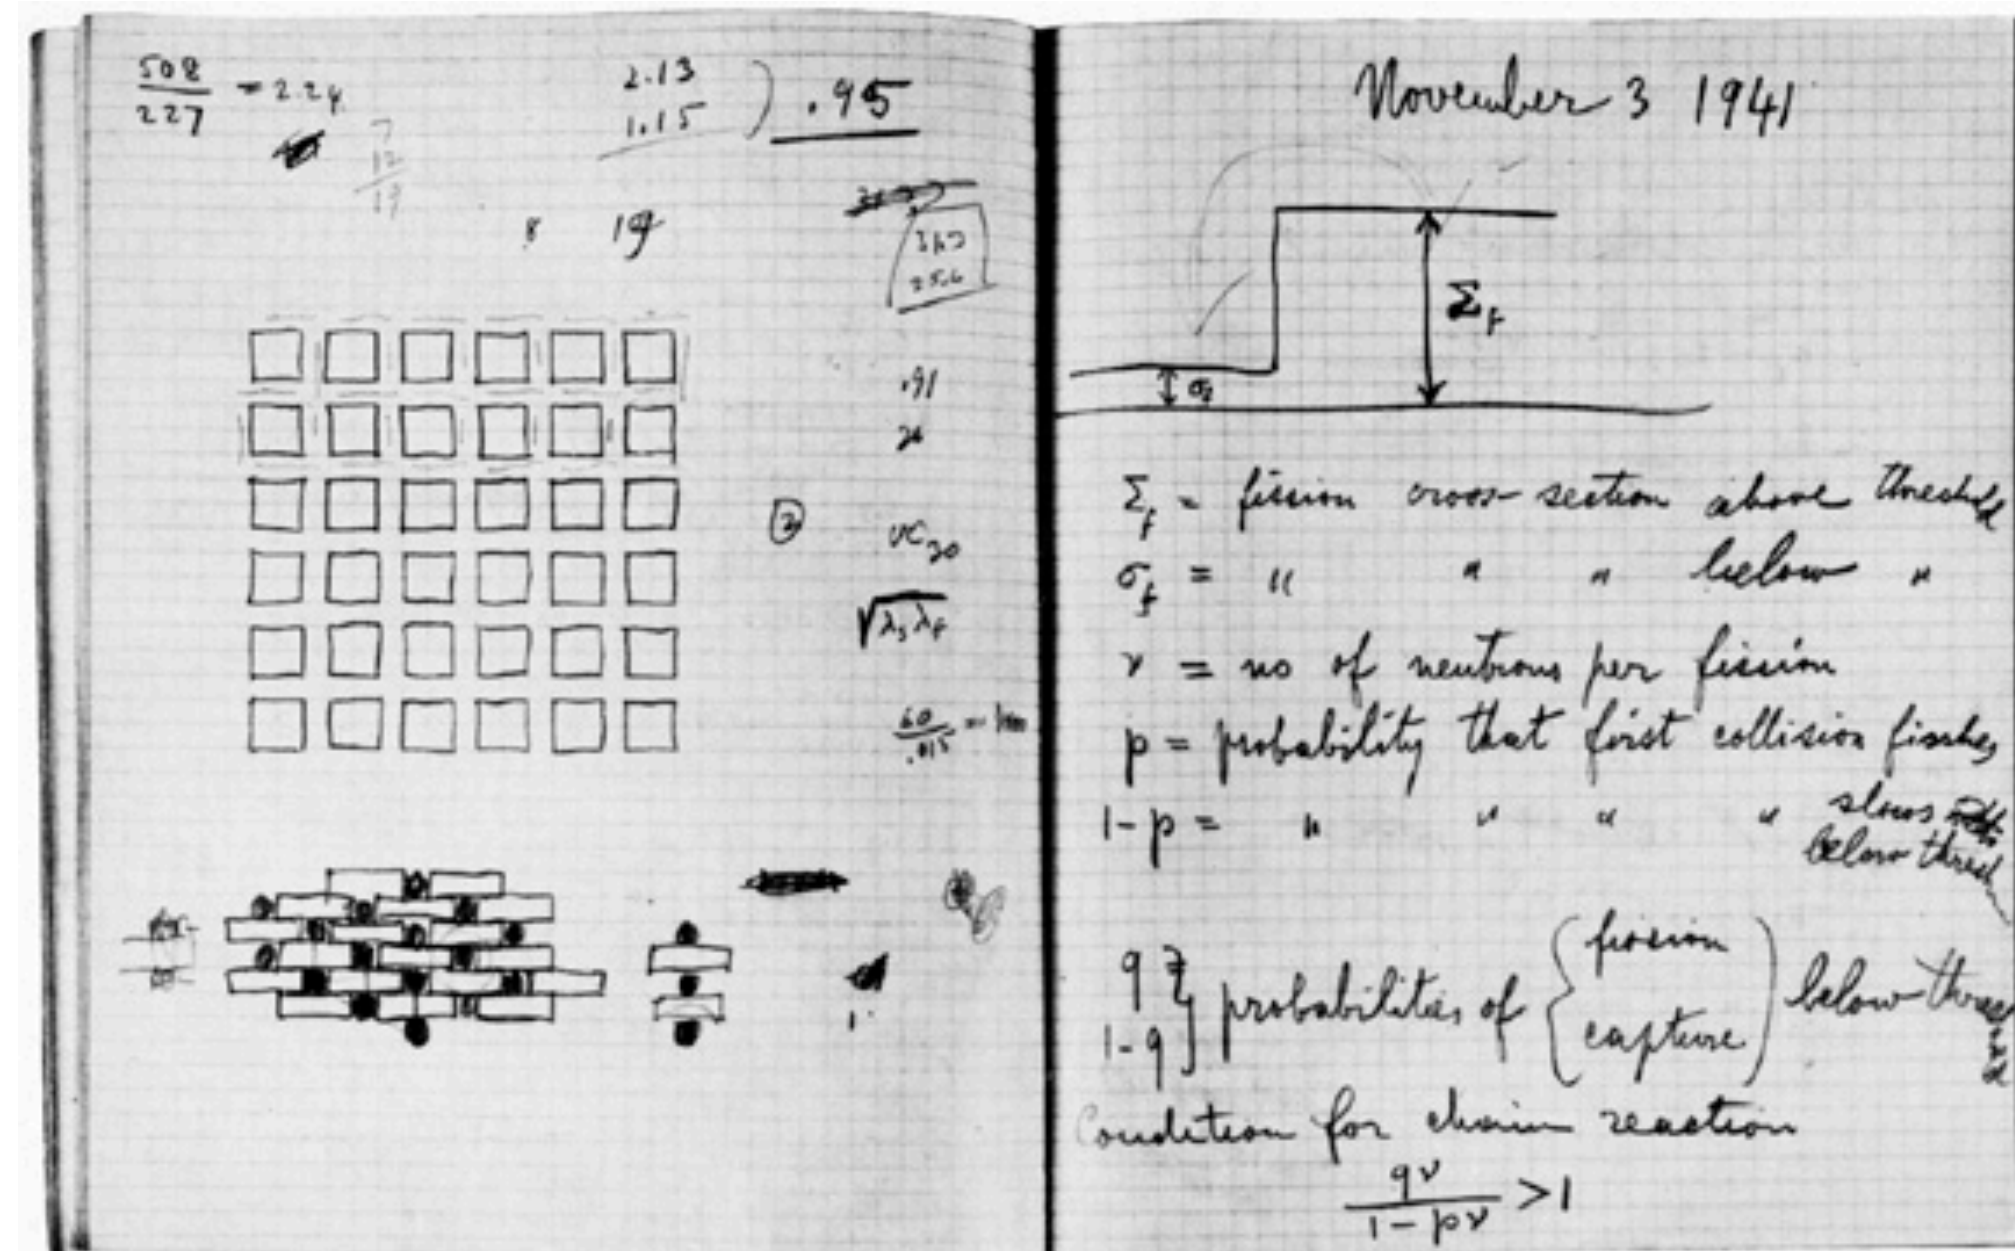 508
227
= 2.24
2.13
1.15
) .95
7
12
19
8
25.6
.91
26
√λsλf
60
.015
=
November 3 1941
Σf
σf
Σf = fission cross-section above threshold
σf = " " " below "
ν = no of neutrons per fission
p = probability that first collision
1-p = " " " " slows
below thresh
q
1-q
} probabilities of { fission
capture ) below threshold
Condition for chain reaction
qν
1-pν
>1